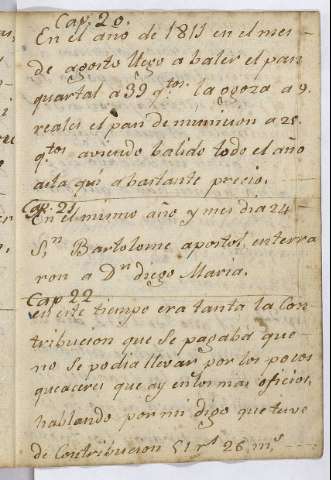 Cap. 20.
En el año de 1811 en el mes
de agosto llego a baler el pan
quartal a 39 qtos. la ogoza a 9
reales el pan de municion a 28
qtos aviendo balido todo el año
asta qui a bastante precio.
Cap. 21
En el mismo año y mes dia 24
Sn. Bartolome apostol, enterra
ron a Dn. diego Maria.
Cap 22
en este tiempo era tanta la Con
tribucion que se pagaba que
no se podia llevar por los pocos
queaceres que ay en los mas oficios,
hablando por mi digo que tuve
de Contribucion 51 rs 26 ms